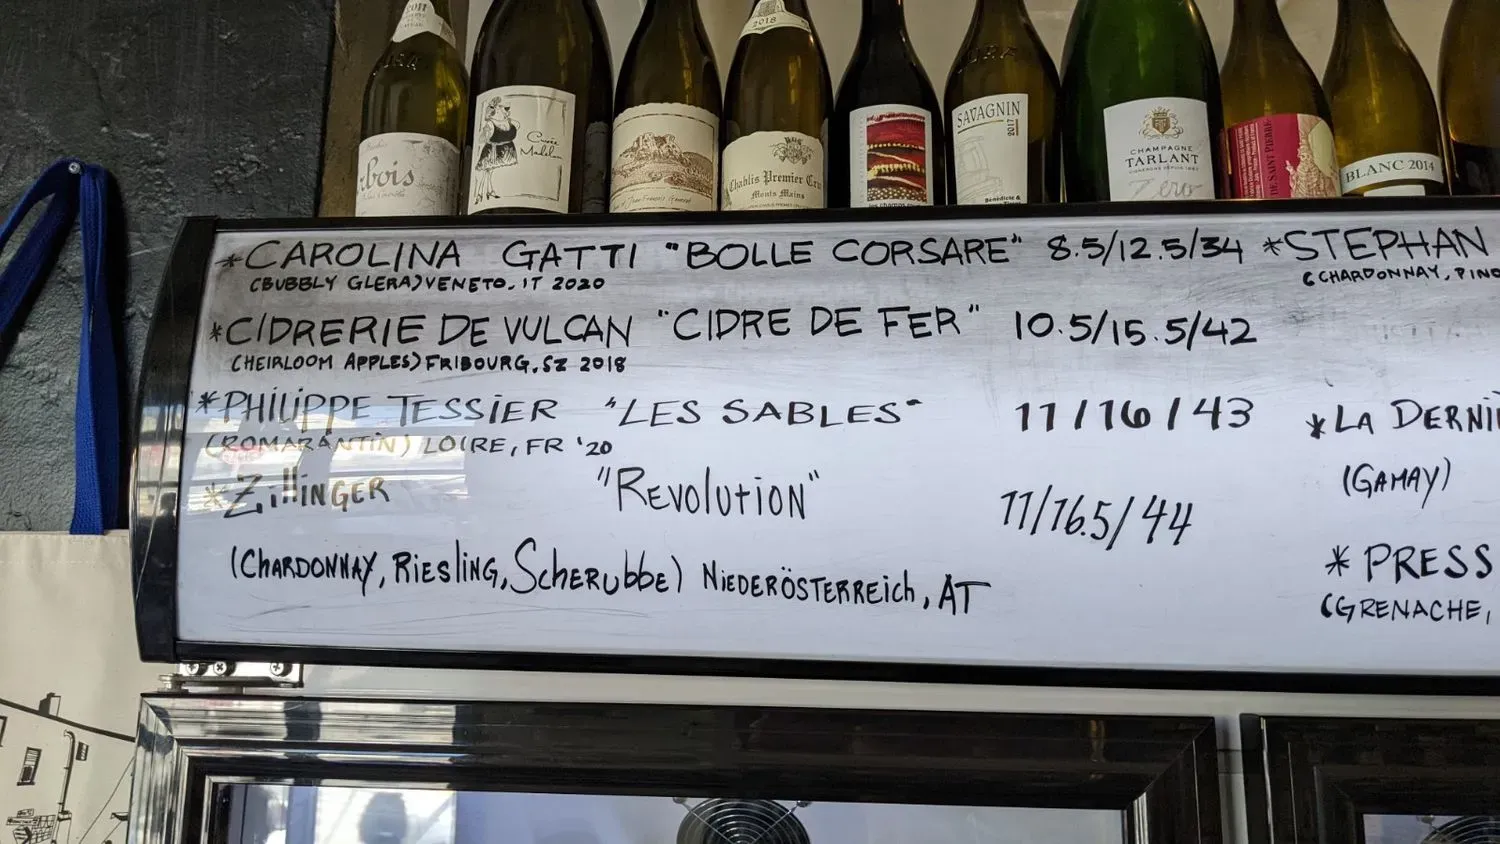 2011
2018
bois
Cuvée
Chablis Premier Cru
Monts Mains
SAVAGNIN
2017
CHAMPAGNE
TARLANT
Zero
DE SAINT PIERRE
BLANC 2014
*CAROLINA GATTI "BOLLE CORSARE" 8.5/12.5/34
(BUBBLY GLERA) VENETO, IT 2020
*CIDRERIE DE VULCAN "CIDRE DE FER" 10.5/15.5/42
(HEIRLOOM APPLES) FRIBOURG, SZ 2018
*PHILIPPE TESSIER "LES SABLES" 11/16/43
(ROMARANTIN) LOIRE, FR '20
*ZillinGER "REVOlUtiON" 11/16.5/44
(CHARDONNAY, RiESliNG, SCHERUbbE) NIEDERÖSTERREich, AT
*STEPHAN
(CHARDONNAY, PINO
*LA DERNI
(GAMAY)
*PRESS
(GRENACHE,